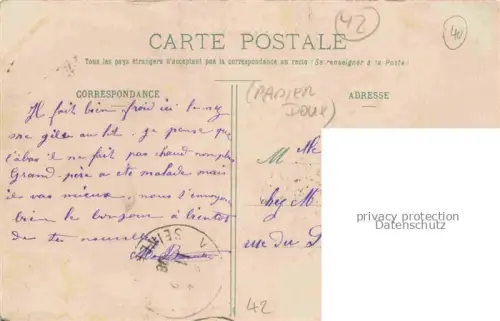 42
40
CARTE POSTALE
Tous les pays étrangers n'acceptent pas la correspondance au recto (Se renseigner à la Poste)
CORRESPONDANCE
ADRESSE
(PAPIER
DOUX)
Il fait bien froid ici le
me gèle au lit. je pense que
l'abas il ne fait pas chaud non plus
Grand-père a ete malade mais
il vas mieux. nous t'envoyons
bien le bonjour a bientot
de tes nouvelles
M
chez M
rue du
privacy protection
Datenschutz
SEINE
42